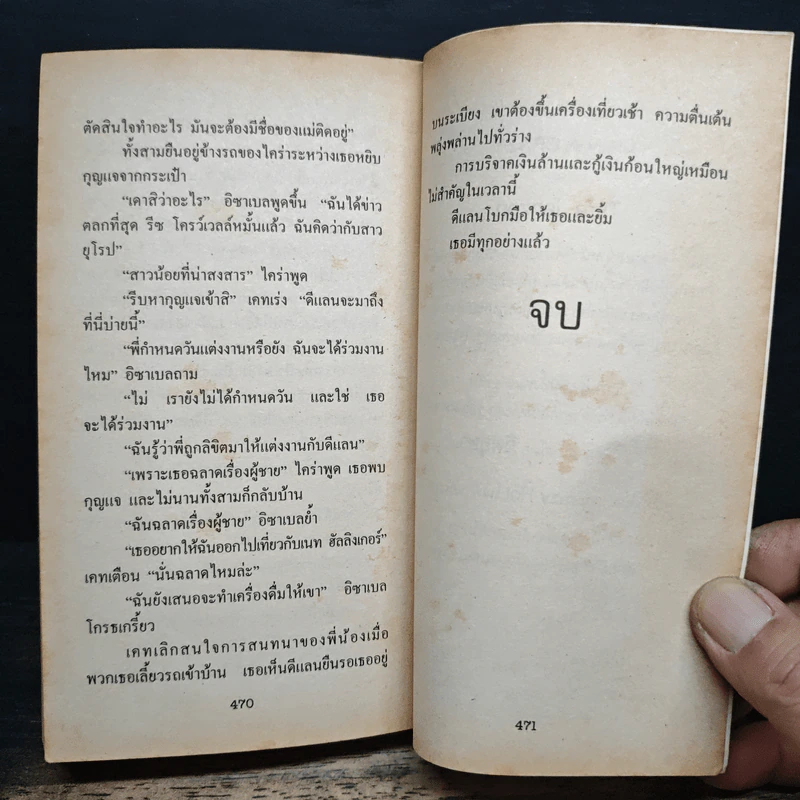 ตัดสินใจทำอะไร มันจะต้องมีชื่อของแม่ติดอยู่”
ทั้งสามยืนอยู่ข้างรถของไคร่าระหว่างเธอหยิบ
กุญแจจากกระเป๋า
“เดาสิว่าอะไร” อิซาเบลพูดขึ้น “ฉันได้ข่าว
ตลกที่สุด รีซ โครว์เวลล์หมั้นแล้ว ฉันคิดว่ากับสาว
ยุโรป”
“สาวน้อยที่น่าสงสาร” ไคร่าพูด
“รีบหากุญแจเข้าสิ” เคทเร่ง “ดีแลนจะมาถึง
ที่นี่บ่ายนี้”
“พี่กำหนดวันแต่งงานหรือยัง ฉันจะได้ร่วมงาน
ไหม” อิซาเบลถาม
“ไม่ เรายังไม่ได้กำหนดวัน และใช่ เธอ
จะได้ร่วมงาน”
“ฉันรู้ว่าพี่ถูกลิขิตมาให้แต่งงานกับดีแลน”
“เพราะเธอฉลาดเรื่องผู้ชาย” ไคร่าพูด เธอพบ
กุญแจ และไม่นานทั้งสามก็กลับบ้าน
“ฉันฉลาดเรื่องผู้ชาย” อิซาเบลย้ำ
“เธออยากให้ฉันออกไปเที่ยวกับเนท ฮัลลิงเกอร์”
เคทเตือน “นั่นฉลาดไหมล่ะ”
“ฉันยังเสนอจะทำเครื่องดื่มให้เขา” อิซาเบล
โกรธเกรี้ยว
เคทเลิกสนใจการสนทนาของพี่น้องเมื่อ
พวกเธอเลี้ยวรถเข้าบ้าน เธอเห็นดีแลนยืนรอเธออยู่
470
บนระเบียง เขาต้องขึ้นเครื่องเที่ยวเช้า ความตื่นเต้น
พลุ่งพล่านไปทั่วร่าง
การบริจาคเงินล้านและกู้เงินก้อนใหญ่เหมือน
ไม่สำคัญในเวลานี้
ดีแลนโบกมือให้เธอและยิ้ม
เธอมีทุกอย่างแล้ว
จบ
471